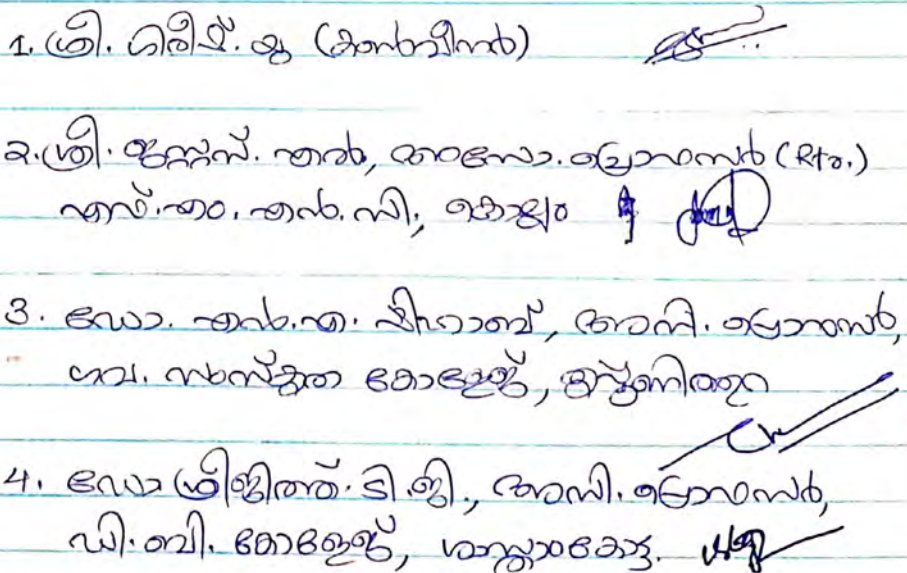 1. ശ്രീ. ഗിരീഷ്. യു (കൺവീനർ)
2. ശ്രീ. ജസ്റ്റസ്. എൽ, അസോ. പ്രൊഫസർ (Rtr.)
എസ്.എം. എൻ. സി; കൊല്ലം
3. ഡോ. എൻ.എ. ഷിഹാബ്, അസി. പ്രൊഫസർ,
ഗവ. സംസ്കൃത കോളേജ്, തൃപ്പൂണിത്തുറ
4. ഡോ ശ്രീജിത്ത്. ടി. ജി., അസി. പ്രൊഫസർ,
ഡി. ബി. കോളേജ്, ശാസ്താംകോട്ട.